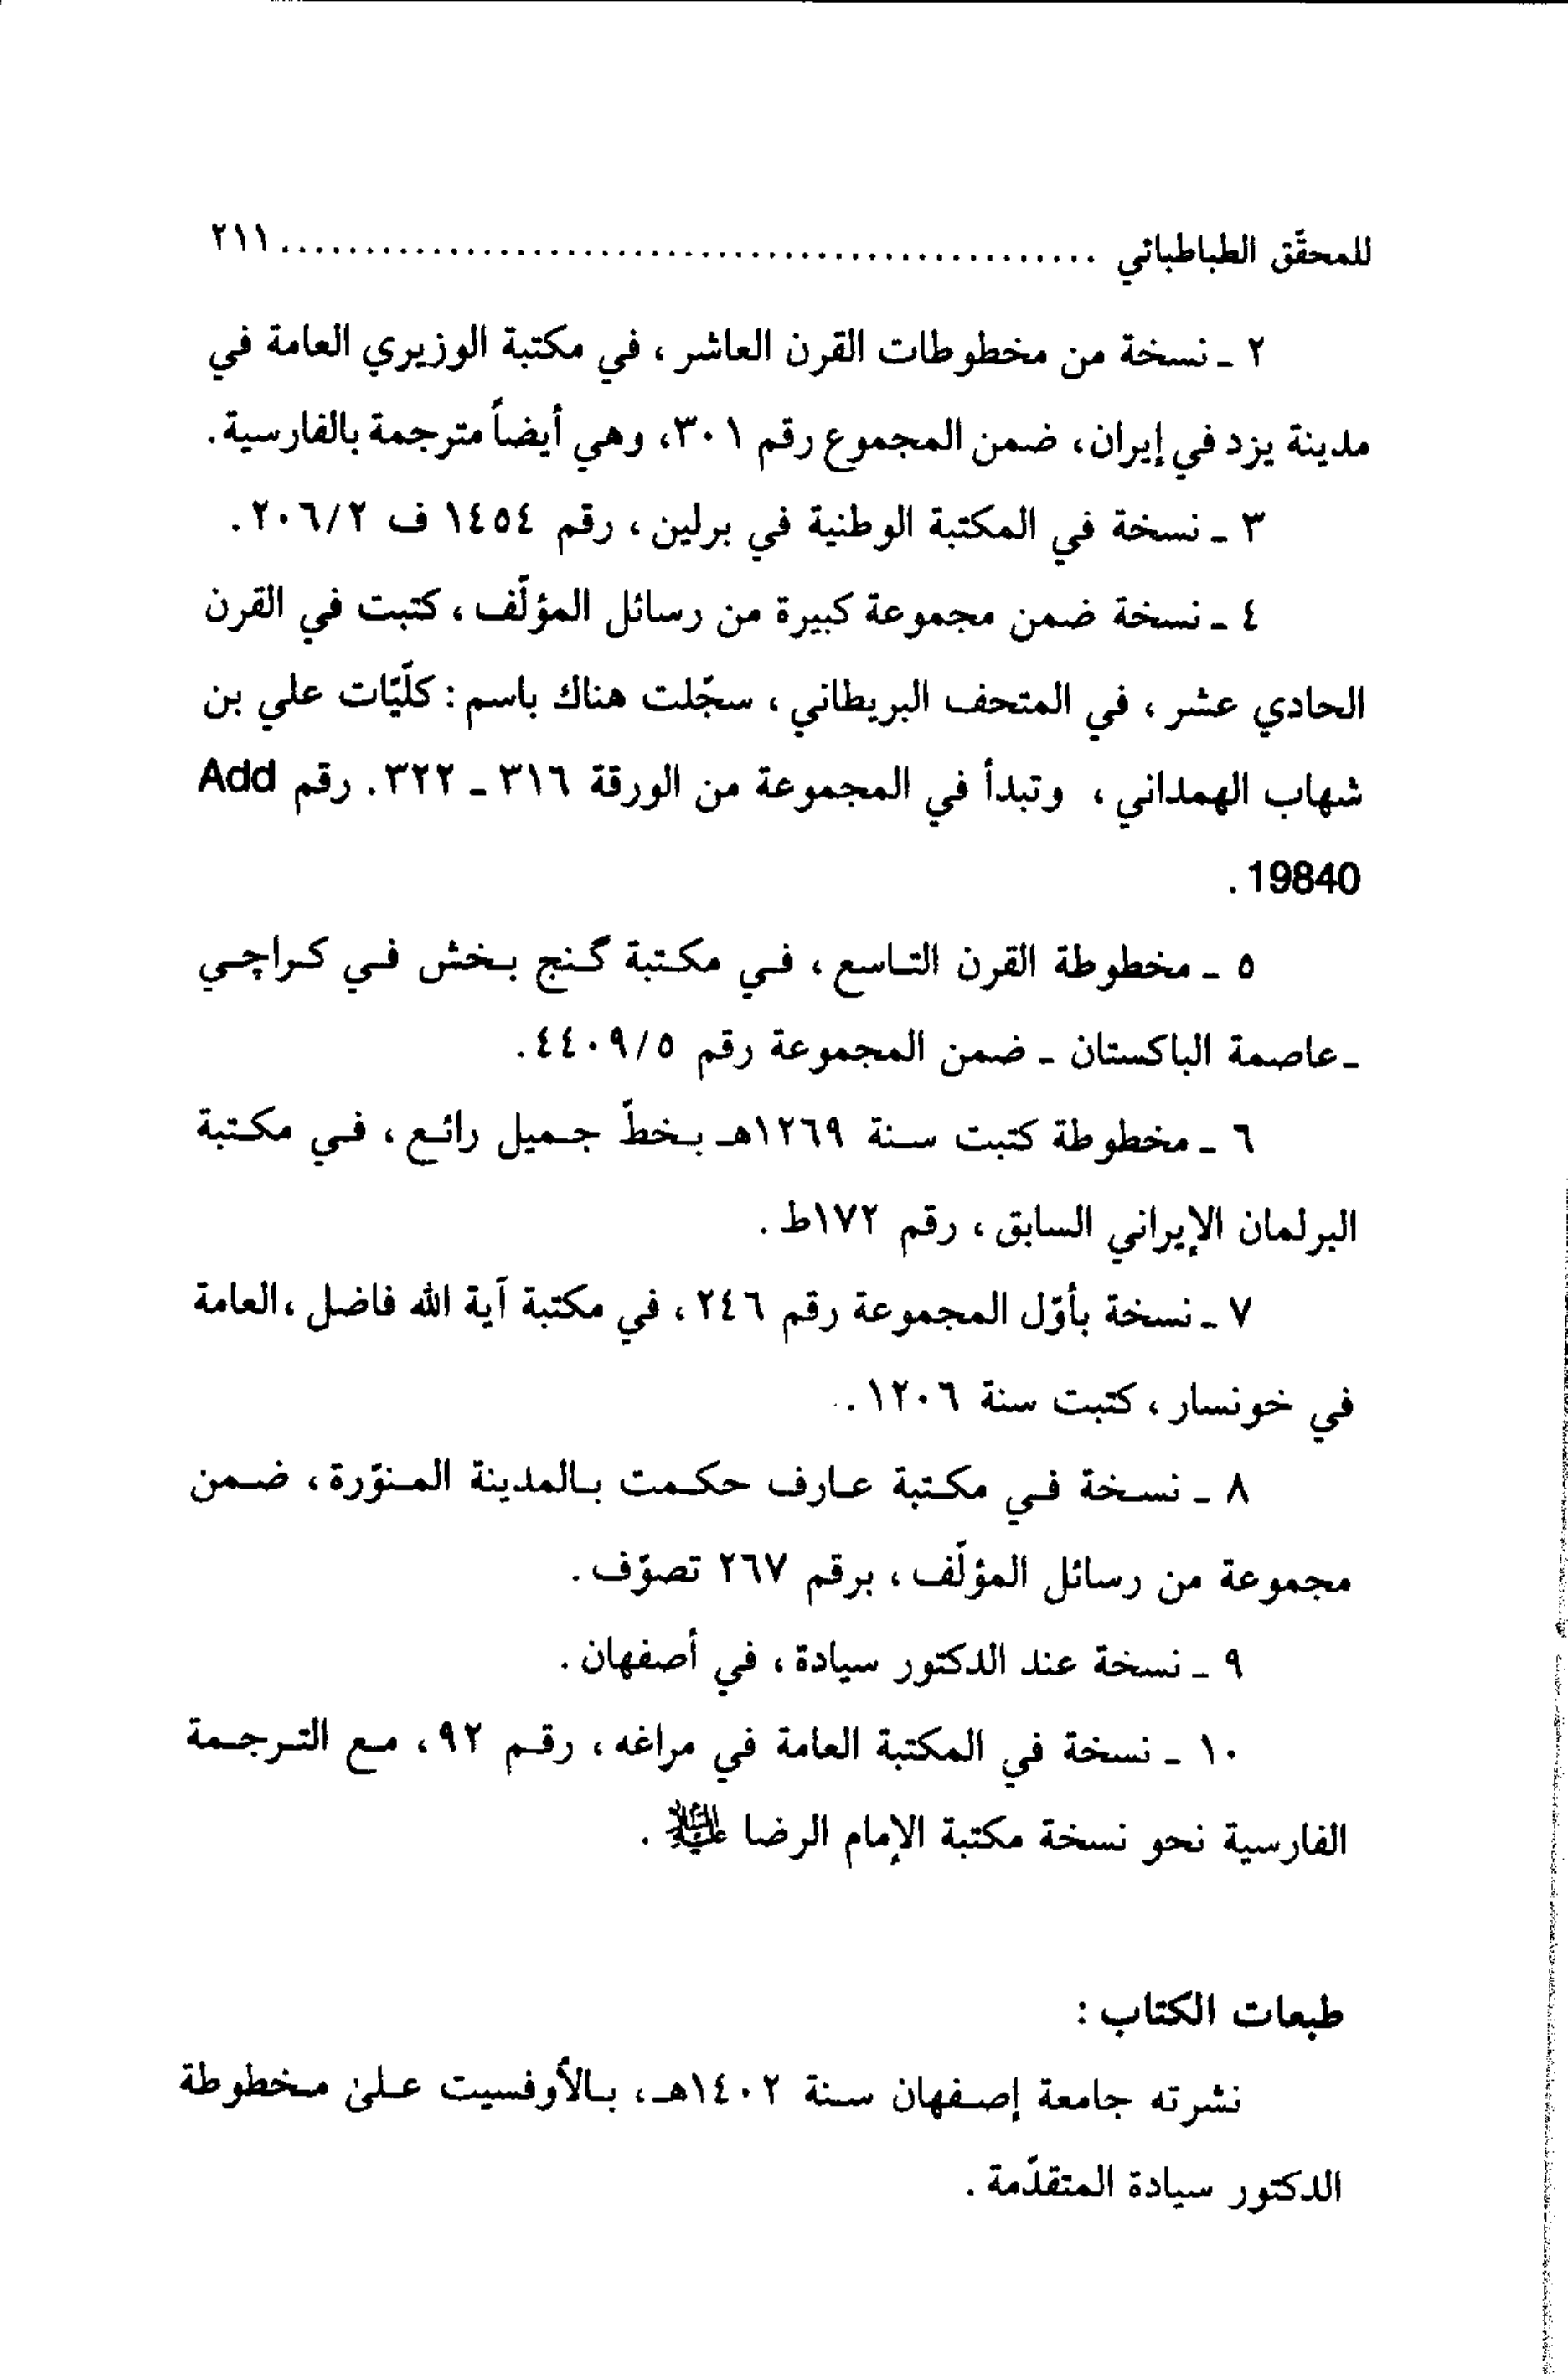 للمحقّق الطباطبائي ................................................. ٢١١
٢ ـ نسخة من مخطوطات القرن العاشر ، في مكتبة الوزيري العامة في
مدينة يزد في إيران، ضمن المجموع رقم ٣٠١، وهي أيضاً مترجمة بالفارسية.
٣ ـ نسخة في المكتبة الوطنية في برلين ، رقم ١٤٥٤ ف ٢٠٦/٢ .
٤ ـ نسخة ضمن مجموعة كبيرة من رسائل المؤلّف ، كتبت في القرن
الحادي عشر ، في المتحف البريطاني ، سجّلت هناك باسم : كلّيّات علي بن
شهاب الهمداني ، وتبدأ في المجموعة من الورقة ٣١٦ ـ ٣٢٢. رقم Add
19840 .
٥ ـ مخطوطة القرن التاسع ، في مكتبة گنج بخش في كراچي
ـ عاصمة الباكستان ـ ضمن المجموعة رقم ٤٤٠٩/٥ .
٦ ـ مخطوطة كتبت سنة ١٢٦٩هـ بخطّ جميل رائع ، في مكتبة
البرلمان الإيراني السابق ، رقم ١٧٢ط .
٧ ـ نسخة بأوّل المجموعة رقم ٢٤٦ ، في مكتبة آية الله فاضل ،العامة
في خونسار ، كتبت سنة ١٢٠٦ .
٨ ـ نسخة في مكتبة عارف حكمت بالمدينة المنوّرة ، ضمن
مجموعة من رسائل المؤلّف ، برقم ٢٦٧ تصوّف .
٩ ـ نسخة عند الدكتور سيادة ، في أصفهان .
١٠ ـ نسخة في المكتبة العامة في مراغه ، رقم ٩٢ ، مع الترجمة
الفارسية نحو نسخة مكتبة الإمام الرضا عليه السلام .
طبعات الكتاب :
نشرته جامعة إصفهان سنة ١٤٠٢هـ ، بالأوفسيت علىٰ مخطوطة
الدكتور سيادة المتقدّمة .